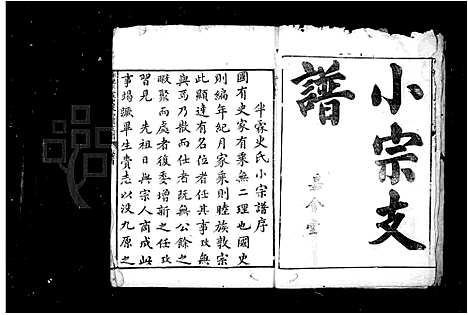 小宗支
譜
半霖史氏小宗譜序
國有史家有乘無二理也國史
則編年紀月家乘則睦族敦宗
此顯達有名位者任其事攻無
與焉乃散而仕者既無公餘之
暇聚而處者復委增新之任攻
習見　先祖日與宗人商成此
事竭蹶畢生賫志以没九原之